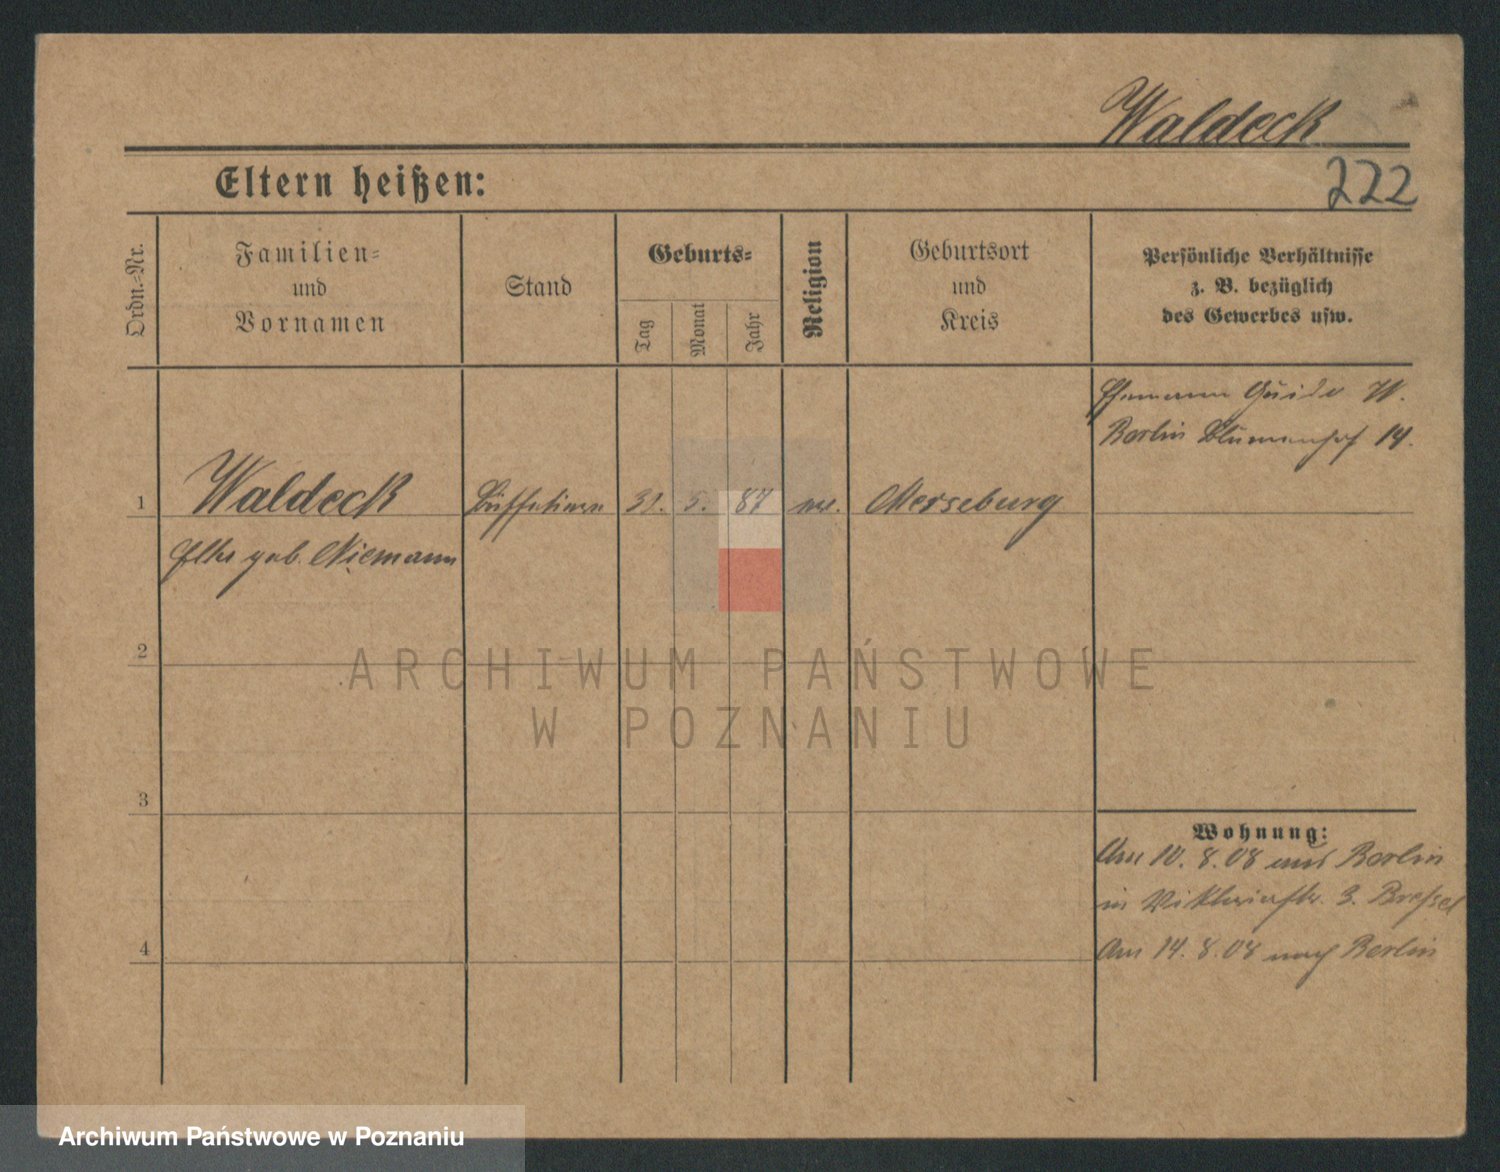 Waldeck
222
Eltern heißen:
Ordn.-Nr.
Familien-
und
Vornamen
Stand
Geburts-
Tag
Monat
Jahr
Religion
Geburtsort
und
Kreis
Persönliche Verhältnisse
z. B. bezüglich
des Gewerbes usw.
Ehemann Guido W.
Berlin Blumenhof 14.
1
Waldeck
Büffetiere
31. 5. 87
Merseburg
geb. Niemann
2
3
4
Wohnung:
Am 10. 8. 08 aus Berlin
in Viktoriastr. 3.
Am 14. 8. 08 nach Berlin
ARCHIWUM PAŃSTWOWE
W POZNANIU
Archiwum Państwowe w Poznaniu